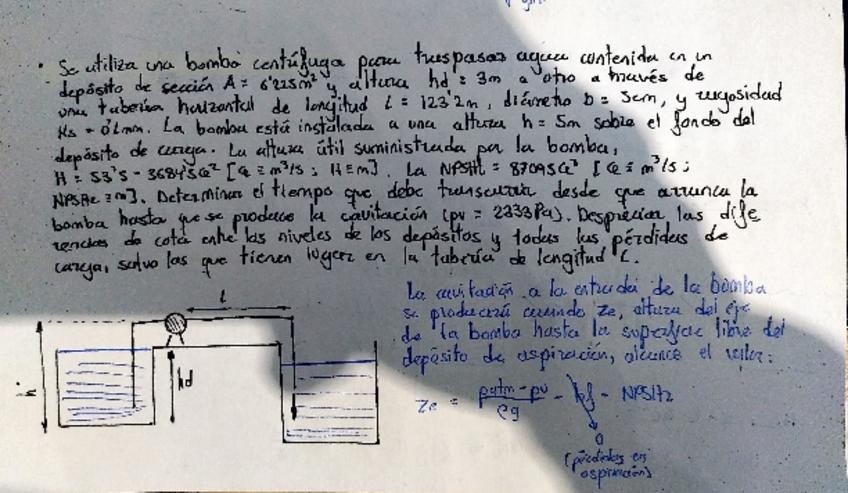 • Se utiliza una bomba centrífuga para traspasar agua contenida en un
depósito de sección A = 6'225m² y altura hd = 3m a otro a través de
una tubería horizontal de longitud L = 123'2m, diámetro D = 5cm, y rugosidad
Ks = 0'1mm. La bomba está instalada a una altura h = 5m sobre el fondo del
depósito de carga. La altura útil suministrada por la bomba,
H = 53'5 - 36845Q² [Q ≡ m³/s ; H ≡ m]. La NPSHr = 87095Q² [Q ≡ m³/s ;
NPSHr ≡ m]. Determinar el tiempo que debe transcurrir desde que arranca la
bomba hasta que se produce la cavitación (pv = 2333Pa). Despreciar las dife
rencias de cota entre los niveles de los depósitos y todas las pérdidas de
carga, salvo las que tienen lugar en la tubería de longitud L.
La cavitación a la entrada de la bomba
se producirá cuando Ze, altura del eje
de la bomba hasta la superficie libre del
depósito de aspiración, alcance el valor:
Ze = patm - pv / ρg - hf - NPSHr
0
(pérdidas en
aspiración)
L
h
hd